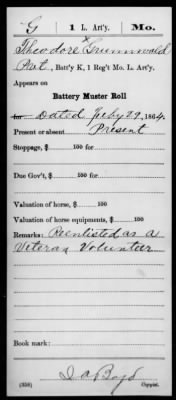 G | 1 L. Art'y. | Mo.
Theodore Grunnwald
Pvt., Batt'y K, 1 Reg't Mo. L. Art'y.
Appears on
Battery Muster Roll
for Dated Feby 29, 1864.
Present or absent Present
Stoppage, $ 100 for
Due Gov't, $ 100 for
Valuation of horse, $ 100
Valuation of horse equipments, $ 100
Remarks: Reenlisted as a
Veteran Volunteer
Book mark:
(358)
Copyist.